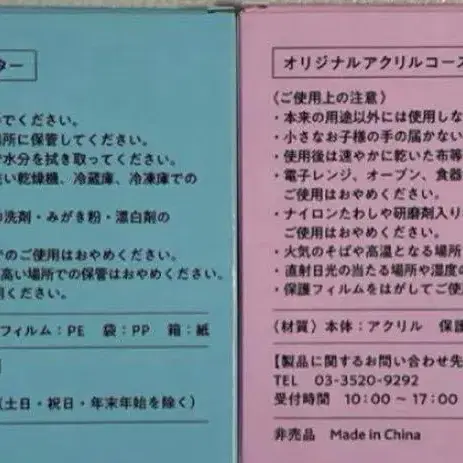 ター
でください。
場所に保管してください。
で水分を拭き取ってください。
洗い乾燥機、冷蔵庫、冷凍庫での
の洗剤・みがき粉・漂白剤の
でのご使用はおやめください。
高い場所での保管はおやめください。
用ください。
フィルム：PE 袋：PP 箱：紙
（土日・祝日・年末年始を除く）
オリジナルアクリルコース
〈ご使用上の注意〉
・本来の用途以外には使用しな
・小さなお子様の手の届かない
・使用後は速やかに乾いた布等
・電子レンジ、オーブン、食器
ご使用はおやめください。
・ナイロンたわしや研磨剤入り
ご使用はおやめください。
・火気のそばや高温となる場所
・直射日光の当たる場所や湿度の
・保護フィルムをはがしてご使
〈材質〉本体：アクリル 保護
【製品に関するお問い合わせ先
TEL 03-3520-9292
受付時間 10：00 ～ 17：00
非売品 Made in China